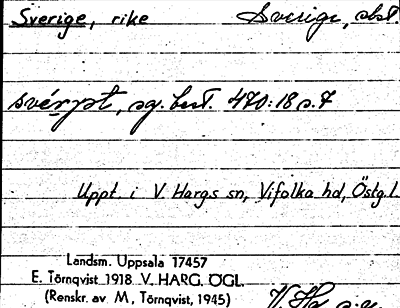 Sverige, rike Sverige, sbst.
svérpt, sg. best. 470:18 s. 7
Uppt. i V. Hargs sn, Vifolka hd, Östg.l.
Landsm. Uppsala 17457
E. Törnqvist 1918 V. HARG. ÖGL.
(Renskr. av M. Törnqvist, 1945)